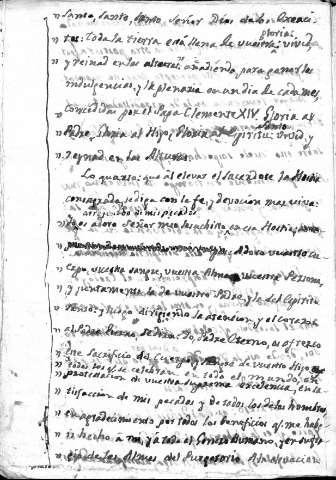 " Santo, Santo, Santo, Señor Dios de los Exerci-
" tos: Toda la tierra está llena de vuestra gloria: vivid,
" y reinad en las alturas: añadiendo para ganar las
" indulgencias, y la plenaria en un dia de cada mes,
concedidas por el Papa Clemente XIV. Gloria al
" Padre, Gloria al Hijo, Gloria al Espiritu Santo: vivid, y
" reynad en las Alturas.
Lo quarto: que al elevar el Sacerdote la Hostia
consagrada, se diga con la fe, y devocion mas viva:
os adoro Señor mio Jesuchristo en esa Hostia,
Adoro vuestro Cu-
" erpo, vuestra Sangre, vuestra Alma, vuestra Persona,
" y juntamente la de vuestro Padre, y la del Espiritu
" Santo: y luego dirigiendo la atencion, y el corazon
al Padre Eterno, se dirá: Yo, Padre Eterno, os ofrezco
" este Sacrificio del Cuerpo, y Sangre de vuestro Hijo,
todos los que se celebran en todo el mundo, en
" protestacion de vuestra suprema excelencia, en sa-
" tisfaccion de mis pecados y de todos los de los hombres,
" en agradecimiento por todos los beneficios q.e me habe-
" is hecho á mi, y á todo el Genero humano, y en sufra-
" gio de las Almas del Purgatorio